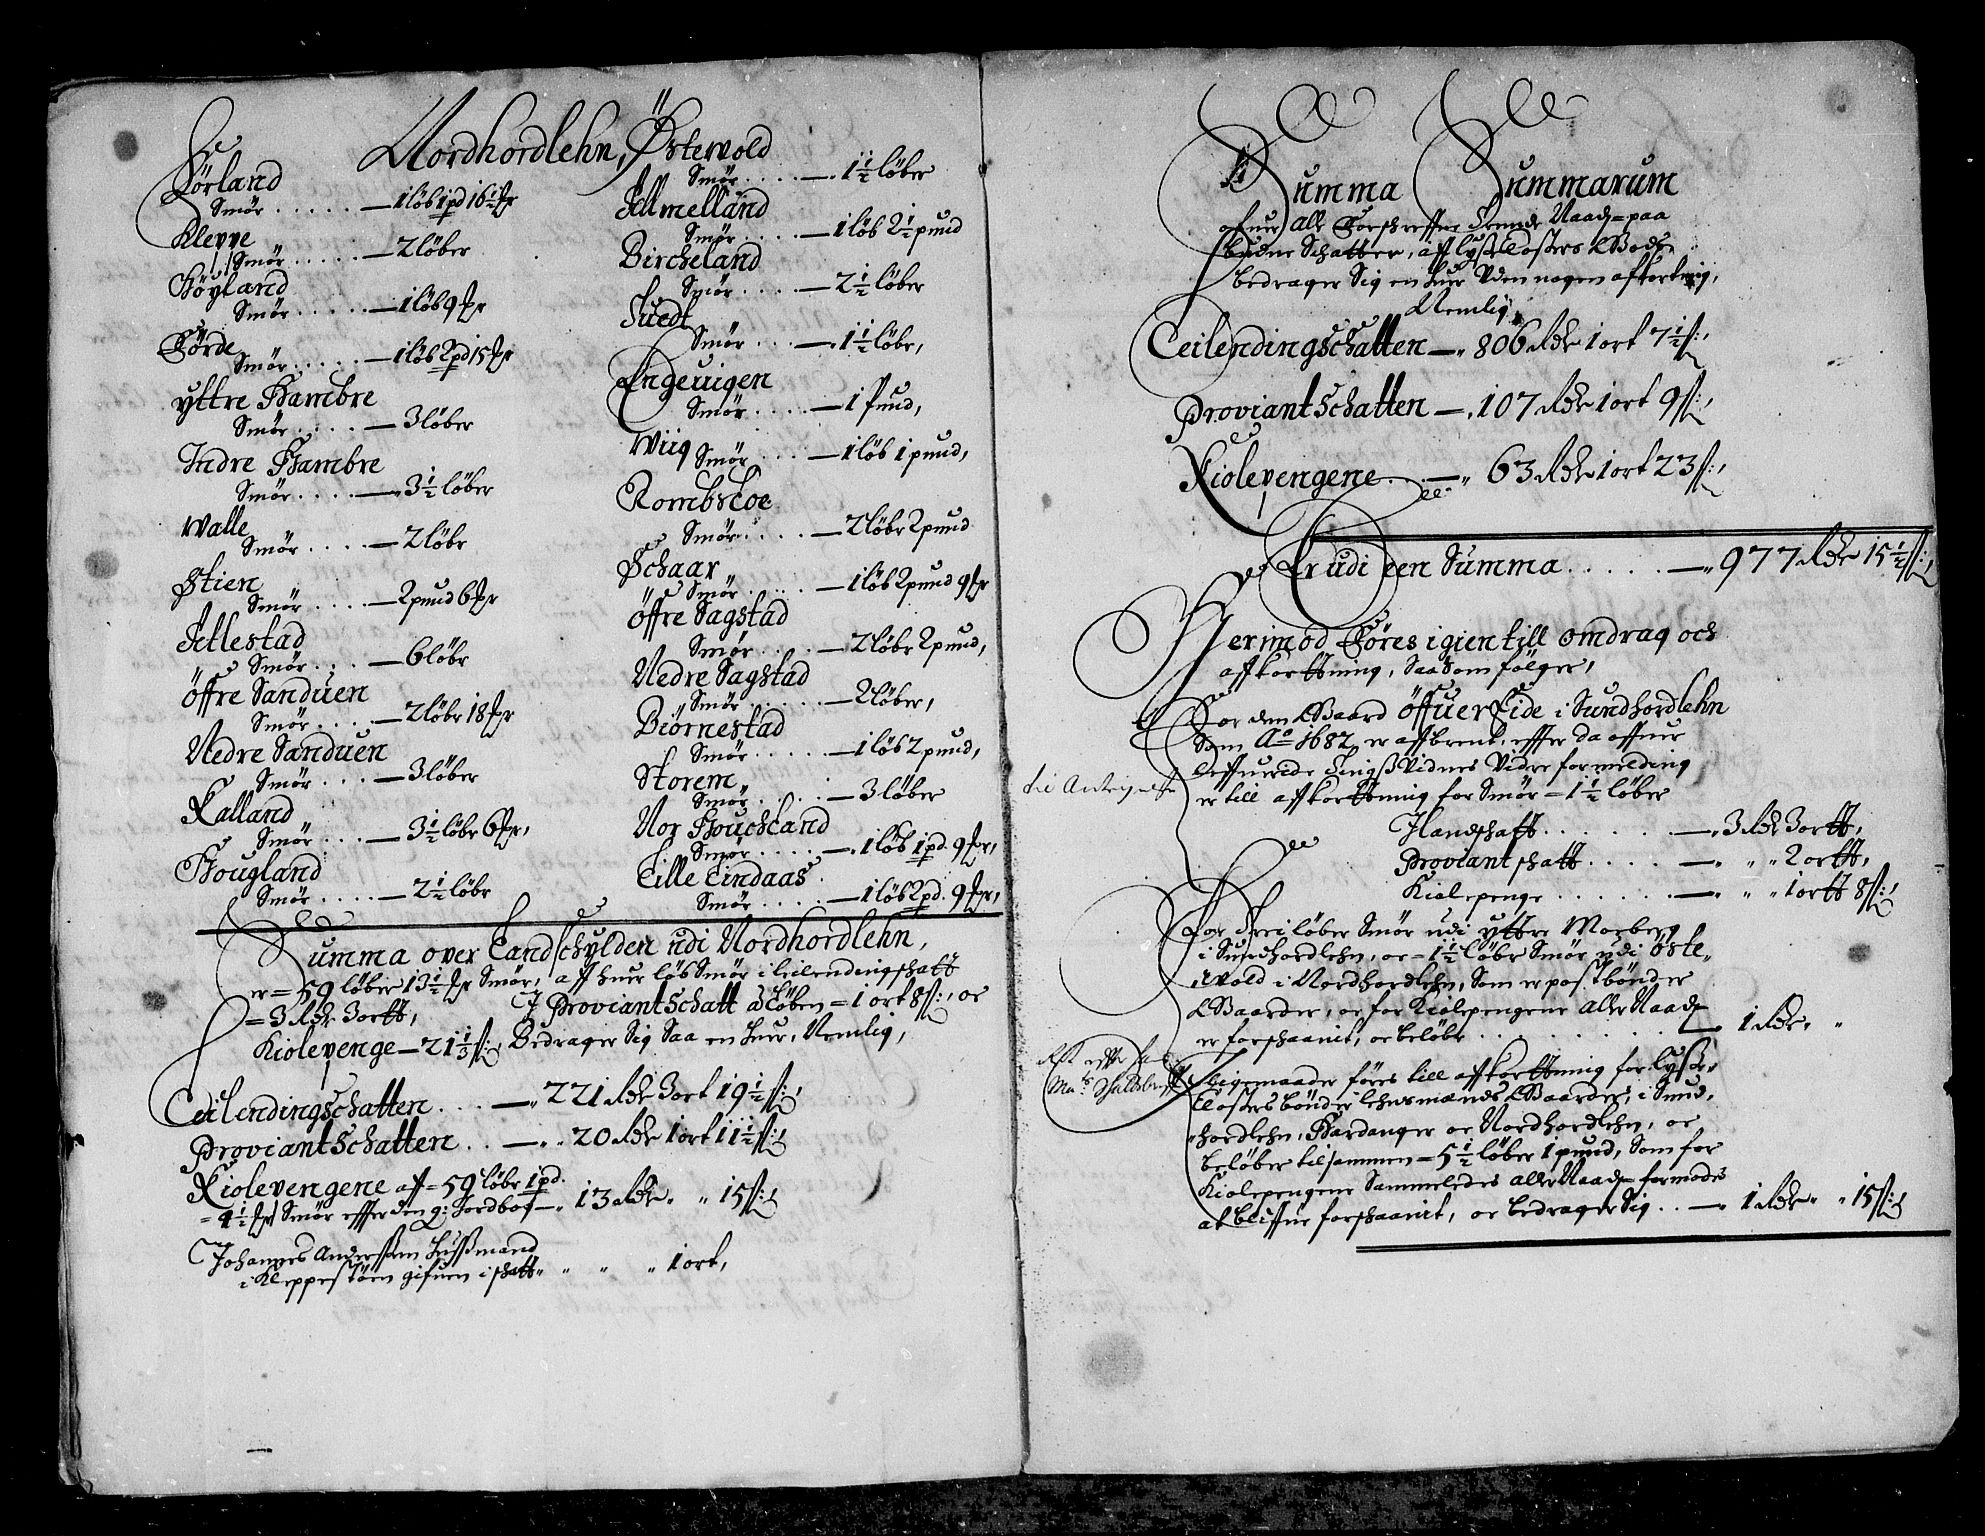 Nordhordlehn,
Förland
Smör . . . . . — 1 löb 1 pd 16 1/2 ℔r
Kleppe
Smör . . . . . — 2 löber
Höyland
Smör . . . . . — 1 löb 9 ℔r
Förde
Smör . . . . . — 1 löb 2 pd 15 ℔r
yttre Hambre
Smör . . . . — 3 löber
Indre Hambre
Smör . . . . — 3 1/2 löber
Walle
Smör . . . . — 2 löbr
Stien
Smör . . . . — 2 pund 6 ℔r
Jellestad
Smör . . . . — 6 löbr
öffre Sanduen
Smör . . . . — 2 löbr 18 ℔r
Nedre Sanduen
Smör . . . — 3 löber
Kalland
Smör . . . . — 3 1/2 löbr 6 ℔r,
Hougland
Smör . . . . — 2 1/2 löbr
Östervold
Smör . . . . — 1 1/2 löber
Jellmelland
Smör . . . . — 1 löb 2 1/2 pund
Bircheland
Smör . . . . — 2 1/2 löber
Tuedt
Smör . . . — 1 1/2 löbr,
Engeuigen
Smör . . . . — 1 Pund,
Wiig
Smör . . . . — 1 löb 1 pund,
Rombscoe
Smör . . . . — 2 löbr 2 pund
Schaar
Smör . . . . . — 1 löb 2 pund 9 ℔r
öffre Sagstad
Smör . . . . — 2 löbr 2 pund,
Nedre Sagstad
Smör . . . . . — 2 löber,
Biörnestad
Smör . . . . . — 1 löb 2 pund,
Storem
Smör . . . . . — 3 löber
Nor Houchland
Smör . . . . — 1 löb 1 pd. 9 ℔r,
Lille Lindaas
Smör . . . . — 1 löb 2 pd. 9 ℔r,
Summa over Landschylden udi Nordhordlehn,
er = 59 löber 13 1/2 ℔r Smör, aff huer löb Smör i leilendingschatt
= 3 Rdr 3 ortt, I Proviant Schatt a Löben = 1 ort 8 s:, oc
Kiolepenge — 21 1/3 s:, Bedrager Sig Saa en huer, Nemlig,
Leilendingschatten . . . — 221 Rdr 3 ort 19 1/2 s:,
Proviant Schatten . . — 20 Rdr 1 ort 11 1/2 s:,
Kiolepengene aff = 59 löbr 1 pd.
= 4 1/2 ℔r Smör effter den g: Jordbog — 13 Rdr „ „ 15 s:,
Johannes Anderssen Hussmand
i Kleppestöen gifuen i schatt „ „ „ „ 1 ort,
Summa Summarum
ofuer alle Forschreffne Kende Naad= paa
budne Schatter, aff Lysecloster Godz
bedrager Sig en huer Uden nogen afkortning,
Nemlig,
Leilendingschatten — 806 Rdr 1 ort 7 1/2 s:,
Proviant Schatten — 107 Rdr 1 ort 9 s:,
Kiolepengene . . — 63 Rdr 1 ort 23 s:,
Er udi een Summa . . . . . — 977 Rdr 15 1/2 s:,
Herimod Föres igien till omdrag och
affkorttning, Saa Som fölger,
For dem Gaard Öffuer Eide i Sundhordlehn
Som Ao 1682 er affbrent, effter da offuer
leffuerede Tingss Vidnes Vidre formelding
er till affkorttning for Smör = 1 1/2 löber
J landschatt . . . . . . — 3 Rdr 3 ortt,
Proviant schatt . . . . . — „ „ 2 ortt,
Kiolepenge . . . . . . — „ „ 1 ortt 8 s:,
For Trei löber Smör udi yttre Morberg
i Sundhordlehn, oc = 1 1/2 löbr Smör udi Öste=
wold i Nordhordlehn, Som er postbönder
Gaarder, oc for Kiolepengene aller Naad=
er forschaanit, oc belöbr . . . . . . — 1 Rdr „ „
Ligemaader föres till affkorttning for Lysse=
Closters bönder lehnsmænds Gaarder, i Sund,
hordlehn, Hardanger oc Nordhordlehn, oc
belöber tilsammen = 5 1/2 löber 1 pund, Som for
Kiolepengene Sammeledes aller Naad= formodes
at bliffue forschaanit, oc bedrager Sig . . — 1 Rdr „ „ 15 s:,